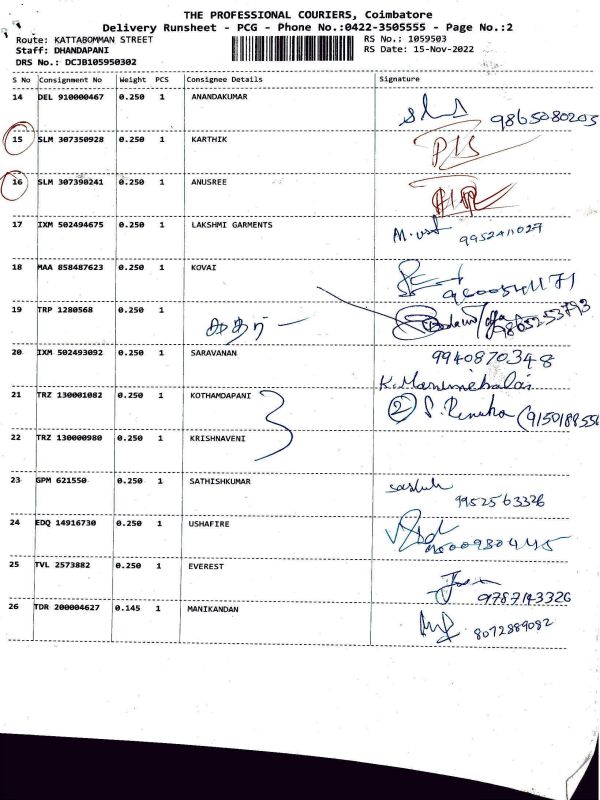 THE PROFESSIONAL COURIERS, Coimbatore
Delivery Runsheet - PCG - Phone No.:0422-3505555 - Page No.:2
Route: KATTABOMMAN STREET RS No.: 1059503
Staff: DHANDAPANI RS Date: 15-Nov-2022
DRS No.: DCJB105950302
S No Consignment No Weight PCS Consignee Details Signature
14 DEL 910000467 0.250 1 ANANDAKUMAR
9865080203
15 SLM 307350928 0.250 1 KARTHIK
16 SLM 307390241 0.250 1 ANUSREE
17 IXM 502494675 0.250 1 LAKSHMI GARMENTS
9952411027
18 MAA 858487623 0.250 1 KOVAI
19 TRP 1280568 0.250 1
9865253793
20 IXM 502493092 0.250 1 SARAVANAN 9940870348
K. Manimekalai
21 TRZ 130001082 0.250 1 KOTHAMDAPANI
② S. Renuka (915018855
22 TRZ 130000980 0.250 1 KRISHNAVENI
23 GPM 621550 0.250 1 SATHISHKUMAR
9952563326
24 EDQ 14916730 0.250 1 USHAFIRE
25 TVL 2573882 0.250 1 EVEREST
9787143326
26 TDR 200004627 0.145 1 MANIKANDAN
8072889082